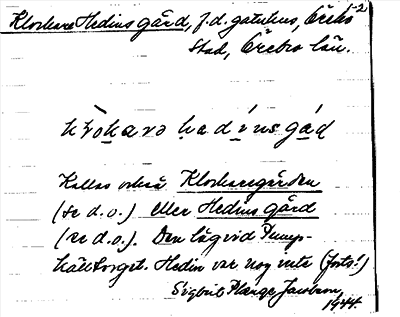 1-2
Klockare Hedins gård, f.d. gatuhus, Örebro
Stad, Örebro län.
klo̱ka̱rə he̱di̱nsgå̱d
Kallas också Klockaregården
(se d.o.) eller Hedins gård
(se d.o.). Den låg vid Pump-
källtorget. Hedin var nog inte (forts!)
Sigbrit Plænge Jacobson,
1944.